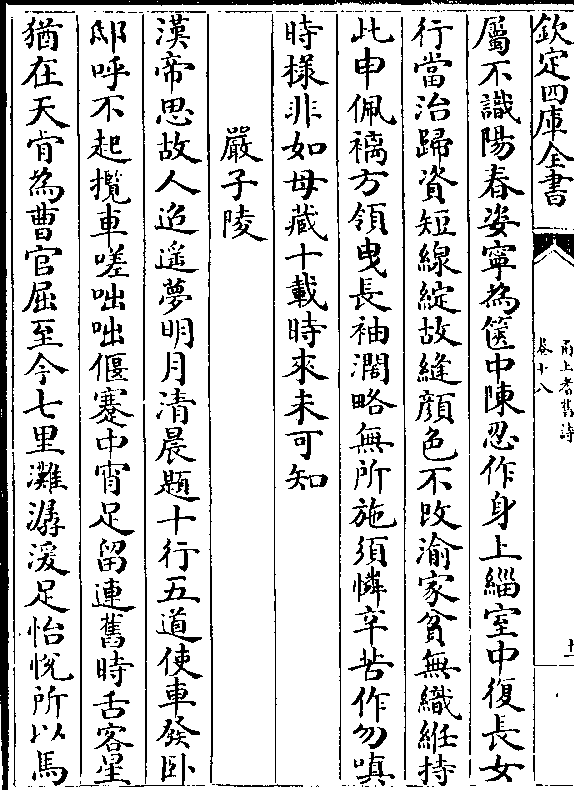 欽定四庫全書
甬上耆舊詩
卷十八
十一
屬不識陽春姿寧為篋中陳忍作身上緇室中復長女
行當治歸資短線綻故縫顏色不敗渝家貧無織絍持
此申佩褵方領曳長袖濶略無所施須憐辛苦作勿嗔
時様非如母藏十載時來未可知
嚴子陵
漢帝思故人迢遥夢明月清晨題十行五道使車發卧
邸呼不起攬車嗟咄咄偃蹇中宵足留連舊時舌客星
猶在天肯為曹官屈至今七里灘潺湲足怡悦所以馬